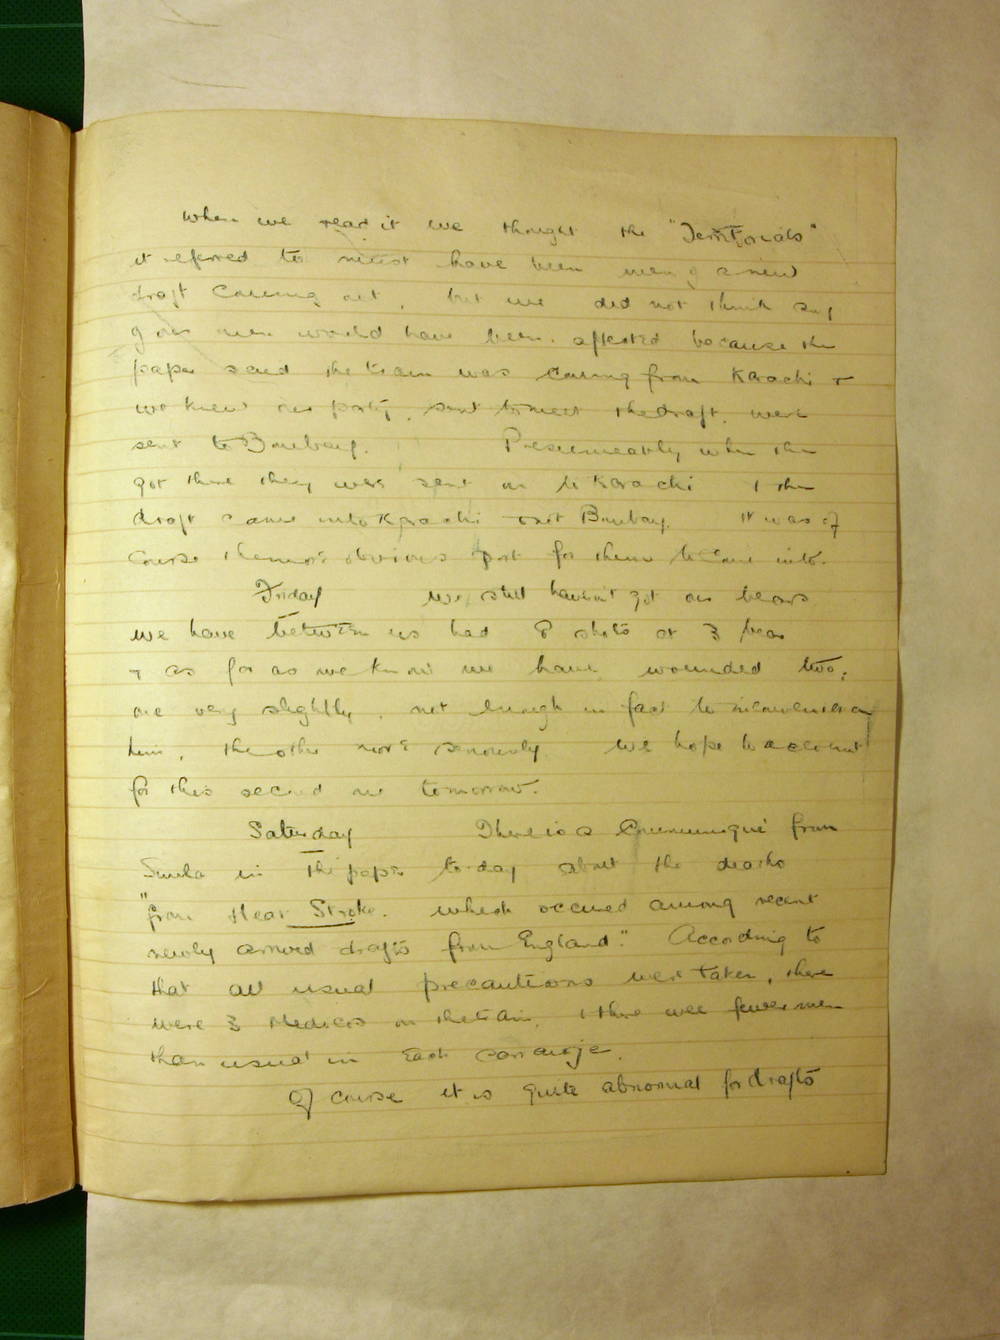 When we read it we thought the "Territorials"
it referred to must have been men of a new
draft coming out, but we did not think any
of our men would have been affected because the
paper said the train was coming from Karachi +
we knew our party, sent to meet the draft, were
sent to Bombay. Presumeably when they
got there they were sent on to Karachi & the
draft came into Karachi & not Bombay. It was of
course the more obvious port for them to come into.
Friday We still haven't got our bears
we have between us had 8 shots at 3 bears
+ as far as we know we have wounded two,
one very slightly, not enough in fact to inconvenience
him, the other more seriously. We hope to account
for this second one tomorrow.
Saturday There is a Communiqué from
Simla in the paper to-day about the deaths
"from Heat Stroke. which occured among recent
newly arrived drafts from England." According to
that all usual precautions were taken, there
were 3 Medicos on the train, & there were fewer men
than usual in each carraige.
Of course it is quite abnormal for drafts